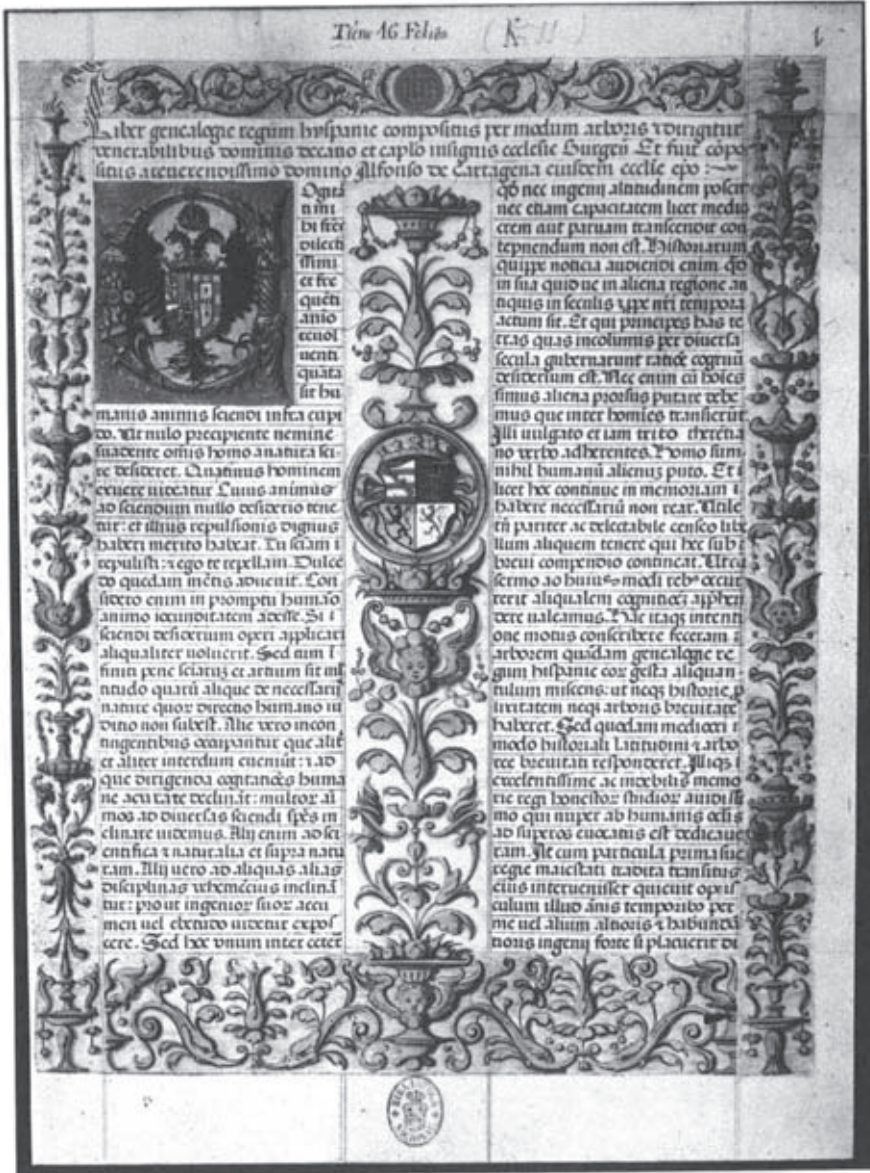 Tiene 16 Felios (K-11) 1
Liber genealogie regum hyspanie compositus per modum arboris ⁊ dirigitur
venerabilibus dominis decano et caplo insignis ecclesie Burgeñ Et fuit cõpo
situs a reverendissimo domino Alfonso de Cartagena eiusdem ecclie epo :~
Ogita
ti mi
hi fr̃es
dilecti
ssimi
et fre
quẽti
anio
reuol
uenti
quãta
sit hu
manis animis sciendi insita cupi
do. Ut nulo precipiente nemine
suadente omis homo a natura sci-
re desideret. Quatinus hominem
exuere uideatur Cuius animus
ad sciendum nullo desiderio tene
tur: et illius repulsionis dignus
haberi merito habeat. Tu sciam
repulisti: ⁊ ego te repellam. Dulce
do quedam mẽtis aduenit. Con
sidero enim in promptu humão
animo iocunditatem adesse. Si
sciendi desiderium operi applicari
aliqualiter uoluerit. Sed cum ĩ
finiti pene sciatuȝ et artium sit ml
titudo quarũ alique de necessarij
nature quor directio humano iu
ditio non subest. Alie vero in con
tingentibus occupantur que alit̃
et aliter interdum eueniũt: ⁊ ad
que dirigenda cogitatiões huma
ne acuitate declinãt: multor añi
mos ad diuersas sciendi spẽs in
clinare uidemus. Alij enim ad sci
entifica ⁊ naturalia et supra natu
ram. Alij uero ad aliquas alias
disciplinas vehemẽcius inclinã
tur: prout ingenior suor acu
men uel ebetudo uidetur expos
cere. Sed hoc vnum inter ceter̃
qđ nec ingenij altitudinem poscit
nec etiam capacitatem licet medio
crem aut paruam transcendit con
tepnendum non est. Historiarum
quippe noticia audiendi enim qđ
in sua quid ue in aliena regione an
tiquis in seculis vsqe nr̃i tempora
actum sit. Et qui principes has te
rras quas incolimus per diuersa
secula gubernarunt
desiderium est. Nec enim cũ hoĩes
simus aliena prorsus putare debe
mus que inter homĩes transierũt
Illi uulgato et iam trito therẽtia
no verbo adherentes. Homo sum
nihil humanũ alienuȝ puto. Et
licet hec continue in memoriam
habere necessariũ non rear. Utile
tñ pariter ac delectabile censeo libe
llum aliquem tenere qui hec sub
breui compendio contineat. Ut cũ
sermo ad huius modi rebȝ occur
rerit aliqualem cognitiõeȝ apphen
dere ualeamus. Hac itaqȝ intenti
one motus conscribere feceram
arborem quãdam genealogie re
gum hispanie cor gesta aliquan
tulum miscens: ut neqȝ historie p
lixitatem neqȝ arboris breuitatẽ
haberet. Sed quedam mediocri
modo historiali latitudini ⁊ arbo
ree breuitati responderet. Illiqȝ
excelentissime ac indebilis memo
rie regi honestor studior auidissi
mo qui nuper ab humanis
ad superos euocatus est dedicaue
ram. At cum particula prima sue
regie maiestati tradita transitus
eius interuenisset quieuit opus
culum illud añis temporibȝ per
me uel alium altioris ⁊ habundã
tioris ingenij forte si placuerit di